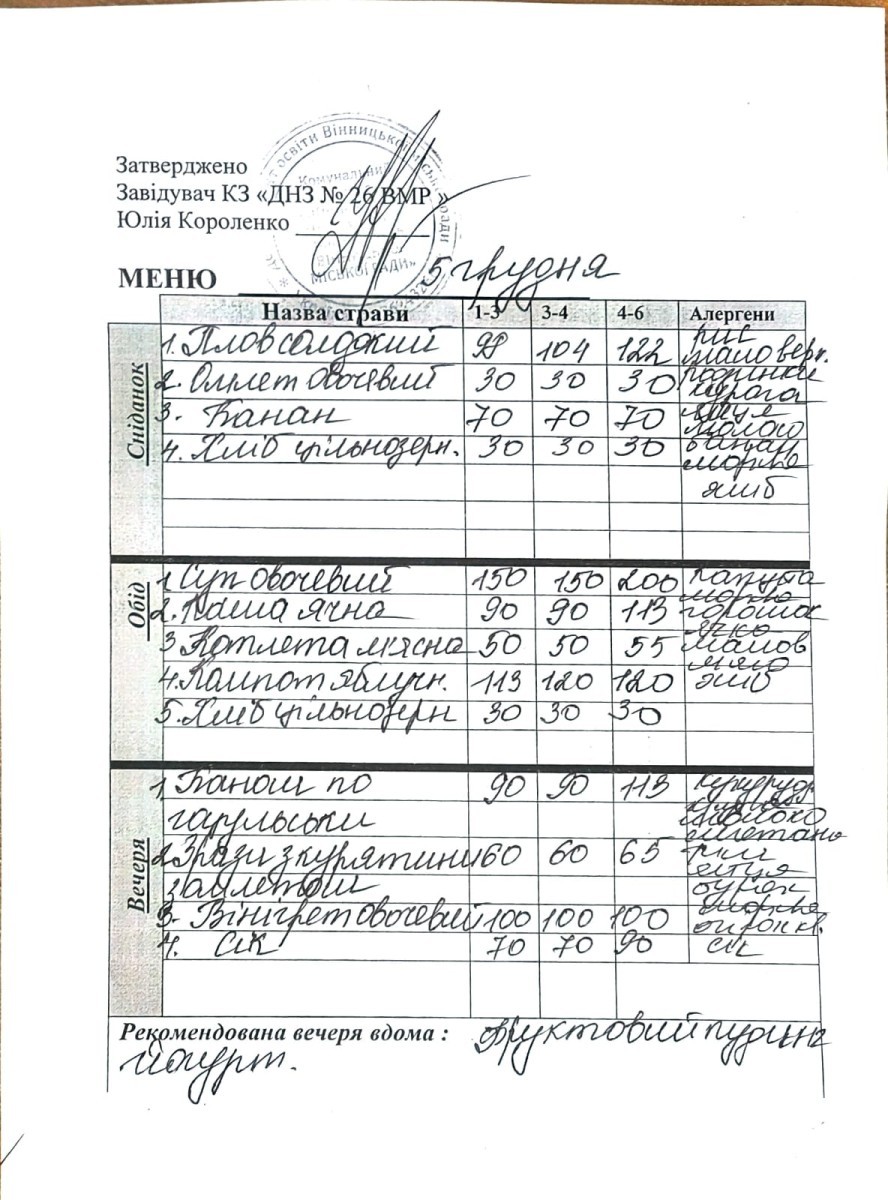 Затверджено
Завідувач КЗ «ДНЗ № 26 ВМР »
Юлія Короленко
освіти Вінницької міської ради
Комунальний
МІСЬКОЇ РАДИ»
МЕНЮ 5 грудня
Назва страви 1-3 3-4 4-6 Алергени
Сніданок
1. Плов солодкий 98 104 122 рис масло верш.
2. Омлет овочевий 30 30 30 родзинки курага
3. Банан 70 70 70 яйця молоко
4. Хліб цільнозерн. 30 30 30 банан морква
хліб
Обід
1 Суп овочевий 150 150 200 капуста морква
2. Каша ячна 90 90 113 горошок ячка
3 Котлета м'ясна 50 50 55 маслов м'ясо
4. Компот яблучн. 113 120 120 хліб
5. Хліб цільнозерн 30 30 30
Вечеря
1, Банош по 90 90 113 кукурудз
гацульськи молоко сметана
2 Зрази з курятини 60 60 65 рис яйця
з омлетом буряк
3. Вінігрет овочевий 100 100 100 морква огірок кв.
4. Сік 70 70 90 сік
Рекомендована вечеря вдома : Фруктовий пудинг
йогурт.